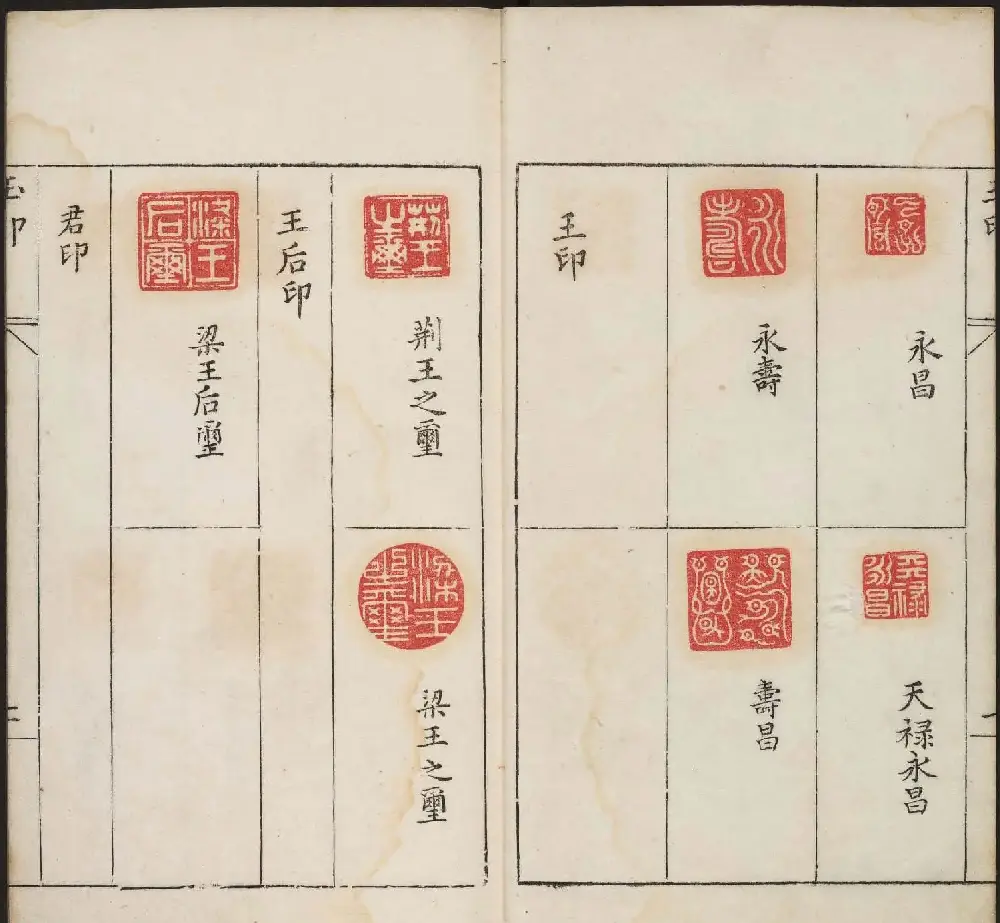 玉印
永昌
天禄永昌
永壽
壽昌
王印
荆王之璽
梁王之璽
王后印
梁王后璽
君印
玉印